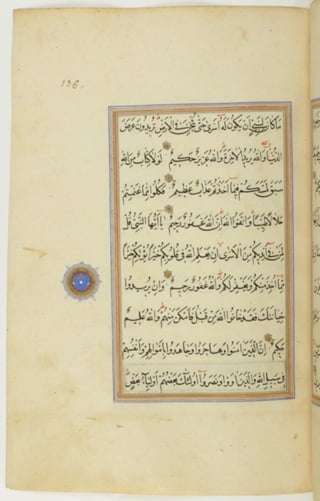 136.
مَا كَانَ لِنَبِيٍّ أَنْ يَكُونَ لَهُ أَسْرَى حَتَّى يُثْخِنَ فِي الْأَرْضِ تُرِيدُونَ عَرَضَ
الدُّنْيَا وَاللَّهُ يُرِيدُ الْآخِرَةَ وَاللَّهُ عَزِيزٌ حَكِيمٌ لَوْلَا كِتَابٌ مِنَ اللَّهِ
سَبَقَ لَمَسَّكُمْ فِيمَا أَخَذْتُمْ عَذَابٌ عَظِيمٌ فَكُلُوا مِمَّا غَنِمْتُمْ
حَلَالًا طَيِّبًا وَاتَّقُوا اللَّهَ إِنَّ اللَّهَ غَفُورٌ رَحِيمٌ يَا أَيُّهَا النَّبِيُّ قُلْ
لِمَنْ فِي أَيْدِيكُمْ مِنَ الْأَسْرَى إِنْ يَعْلَمِ اللَّهُ فِي قُلُوبِكُمْ خَيْرًا يُؤْتِكُمْ خَيْرًا
مِمَّا أُخِذَ مِنْكُمْ وَيَغْفِرْ لَكُمْ وَاللَّهُ غَفُورٌ رَحِيمٌ وَإِنْ يُرِيدُوا
خِيَانَتَكَ فَقَدْ خَانُوا اللَّهَ مِنْ قَبْلُ فَأَمْكَنَ مِنْهُمْ وَاللَّهُ عَلِيمٌ
حَكِيمٌ إِنَّ الَّذِينَ آمَنُوا وَهَاجَرُوا وَجَاهَدُوا بِأَمْوَالِهِمْ وَأَنْفُسِهِمْ
فِي سَبِيلِ اللَّهِ وَالَّذِينَ آوَوْا وَنَصَرُوا أُولَئِكَ بَعْضُهُمْ أَوْلِيَاءُ بَعْضٍ